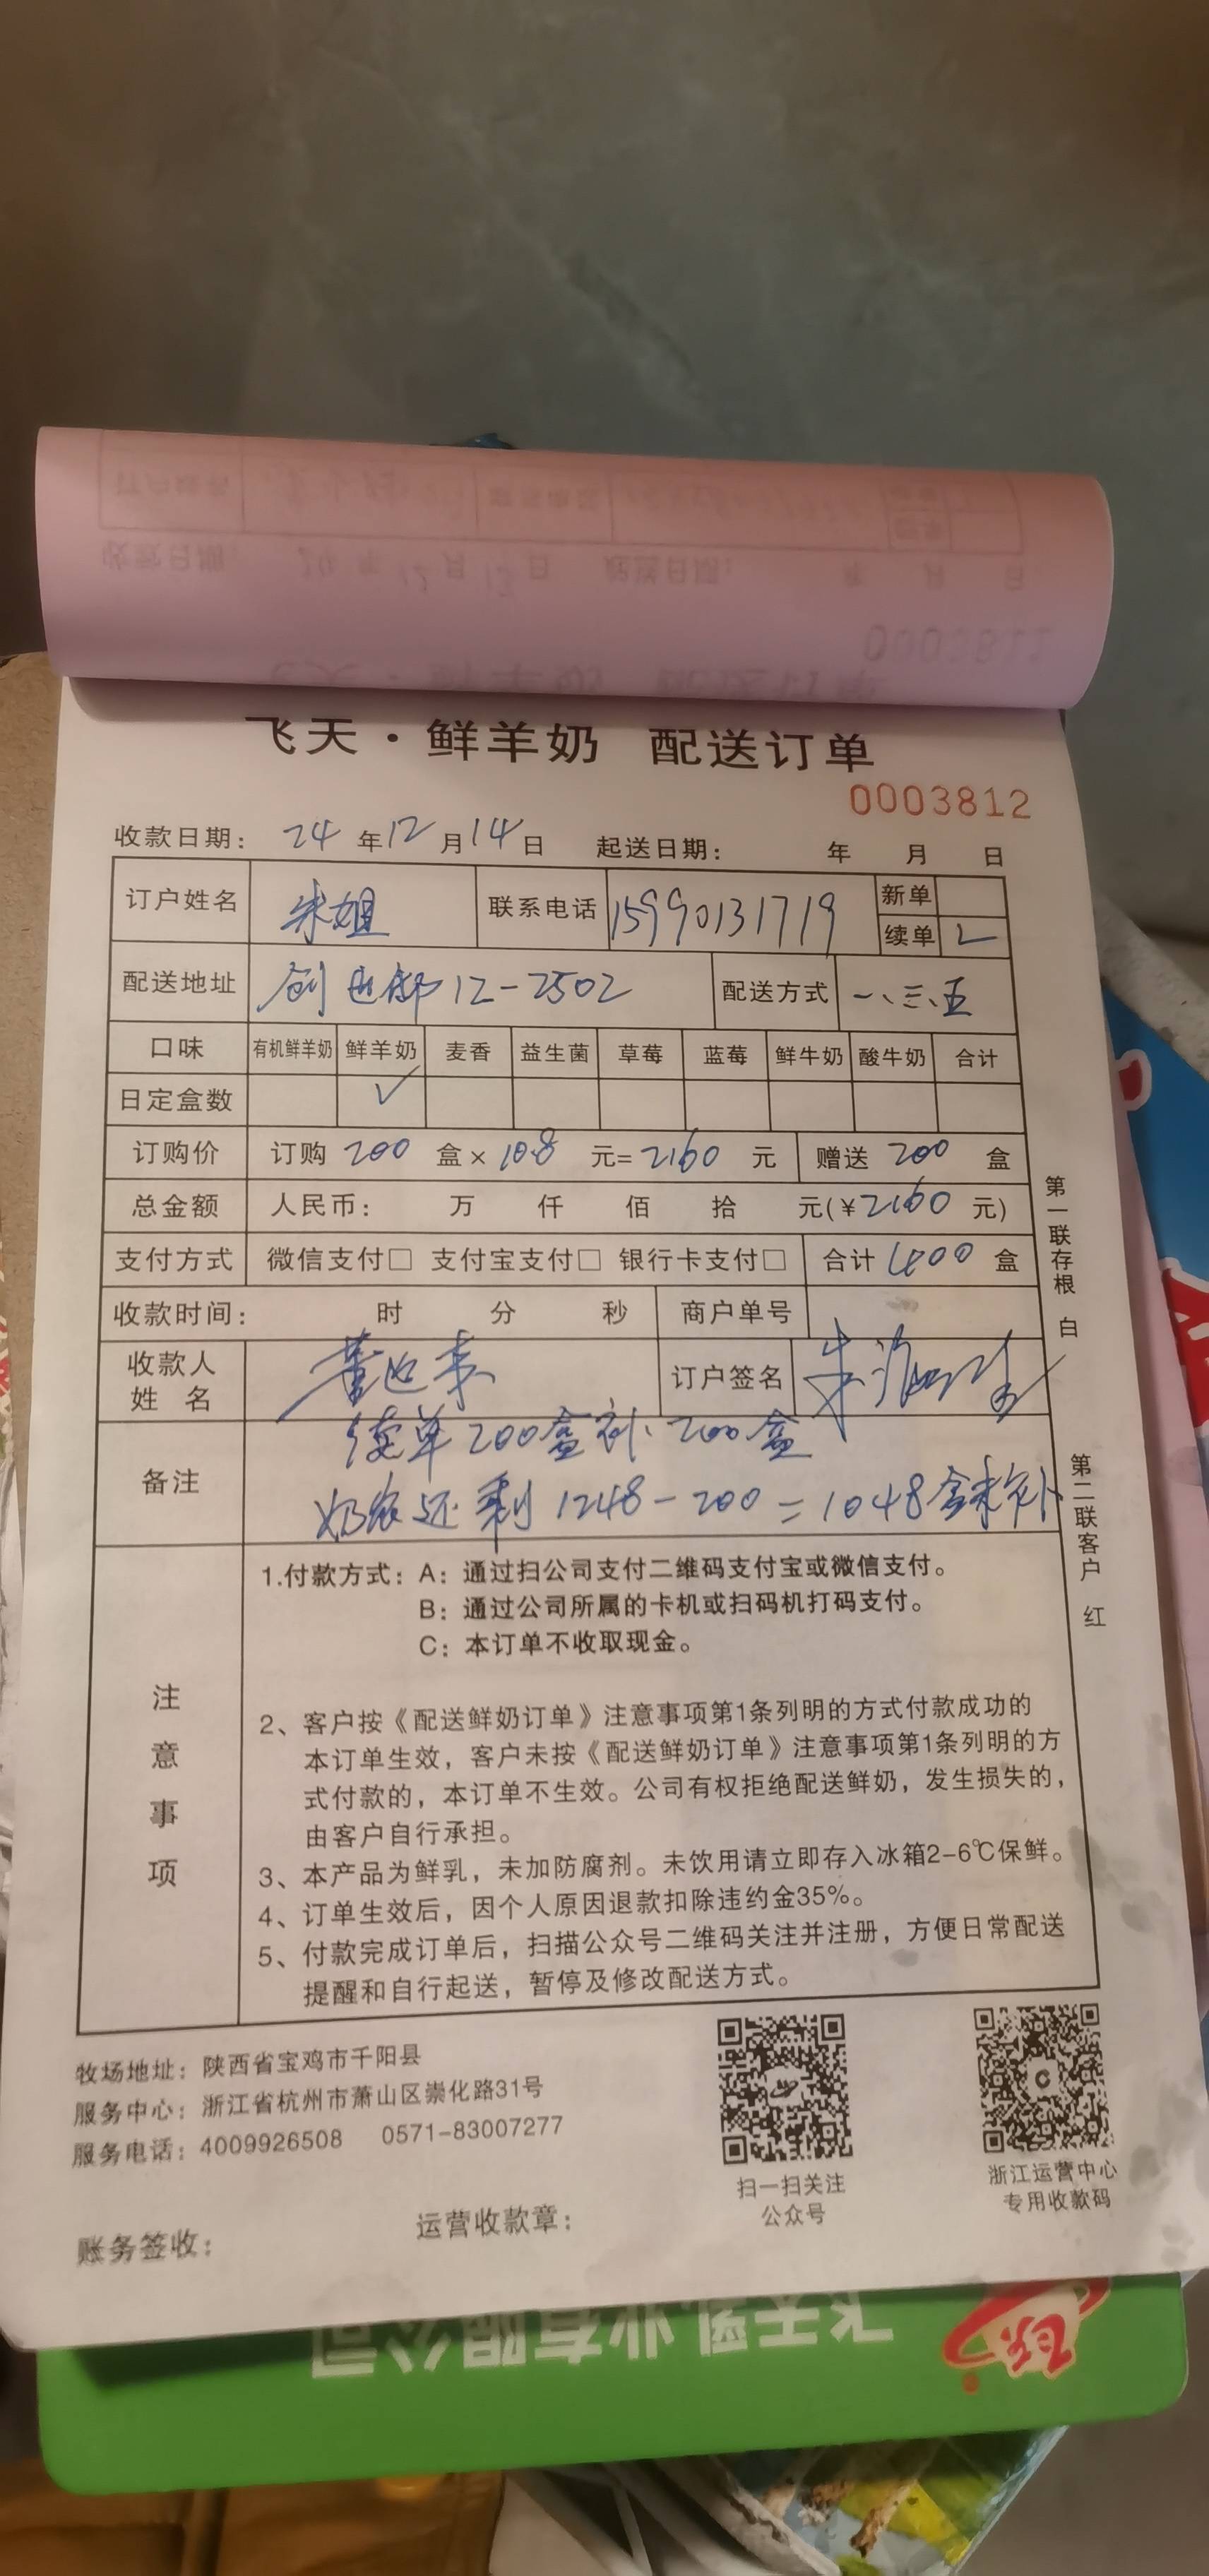 飞天·鲜羊奶 配送订单
0003812
收款日期: 24 年 12 月 14 日 起送日期: 年 月 日
订户姓名 朱姐 联系电话 15990131719 新单
续单 ✓
配送地址 创世邸 12-2502 配送方式 一、三、五
口味 有机鲜羊奶 鲜羊奶 麦香 益生菌 草莓 蓝莓 鲜牛奶 酸牛奶 合计
日定盒数 ✓
订购价 订购 200 盒× 10.8 元= 2160 元 赠送 200 盒
总金额 人民币: 万 仟 佰 拾 元(¥2160 元)
支付方式 微信支付□ 支付宝支付□ 银行卡支付□ 合计 400 盒
收款时间: 时 分 秒 商户单号
收款人
姓 名 订户签名 朱
备注 续单200盒补200盒
奶农还剩1248-200=1048盒未补
注意事项
1.付款方式: A: 通过扫公司支付二维码支付宝或微信支付。
B: 通过公司所属的卡机或扫码机打码支付。
C: 本订单不收取现金。
2、客户按《配送鲜奶订单》注意事项第1条列明的方式付款成功的
本订单生效,客户未按《配送鲜奶订单》注意事项第1条列明的方
式付款的,本订单不生效。公司有权拒绝配送鲜奶,发生损失的,
由客户自行承担。
3、本产品为鲜乳,未加防腐剂。未饮用请立即存入冰箱2-6℃保鲜。
4、订单生效后,因个人原因退款扣除违约金35%。
5、付款完成订单后,扫描公众号二维码关注并注册,方便日常配送
提醒和自行起送,暂停及修改配送方式。
第一联存根 白
第二联客户 红
牧场地址: 陕西省宝鸡市千阳县
服务中心: 浙江省杭州市萧山区崇化路31号
服务电话: 4009926508 0571-83007277
扫一扫关注
公众号
浙江运营中心
专用收款码
账务签收:
运营收款章:
飞天乳业有限公司